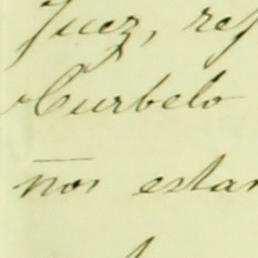 Juez, ref
Curbelo
nos estan